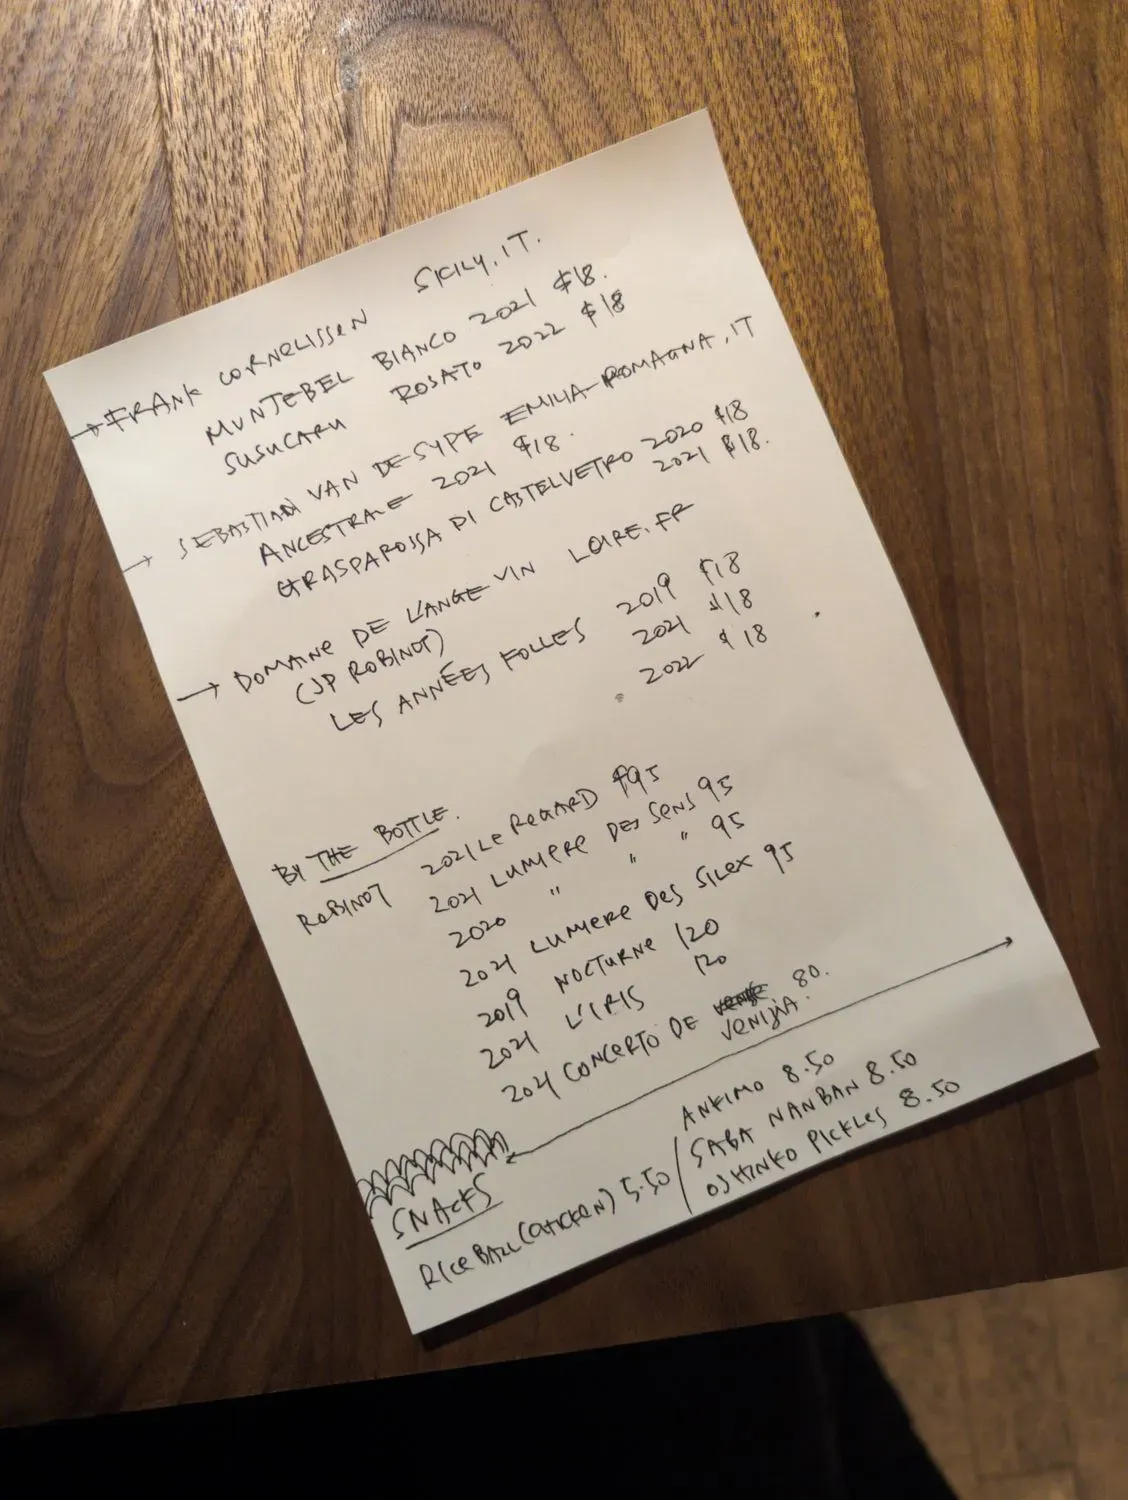 → FRANK CORNELISSEN SICILY, IT.
MUNJEBEL BIANCO 2021 $18.
SUSUCARU ROSATO 2022 $18
→ SEBASTIAN VAN DE SYPE EMILIA-ROMAGNA, IT
ANCESTRALE 2021 $18.
GRASPAROSSA DI CASTELVETRO 2020 $18
2021 $18.
→ DOMAINE DE L'ANGE VIN LOIRE. FR
(JP ROBINOT)
LES ANNÉES FOLLES 2019 $18
2021 $18
2022 $18
BY THE BOTTLE.
ROBINOT 2021 LE REGARD $95
2021 LUMIERE DES SENS 95
2020 " " " 95
2021 LUMIERE DES SILEX 95
2019 NOCTURNE 120
2021 L'IRIS 120
2021 CONCERTO DE VENIZIA. 80.
SNACKS
RICE BALL (CHICKEN) 5.50 / ANKIMO 8.50
SABA NANBAN 8.50
OSHINKO PICKLES 8.50